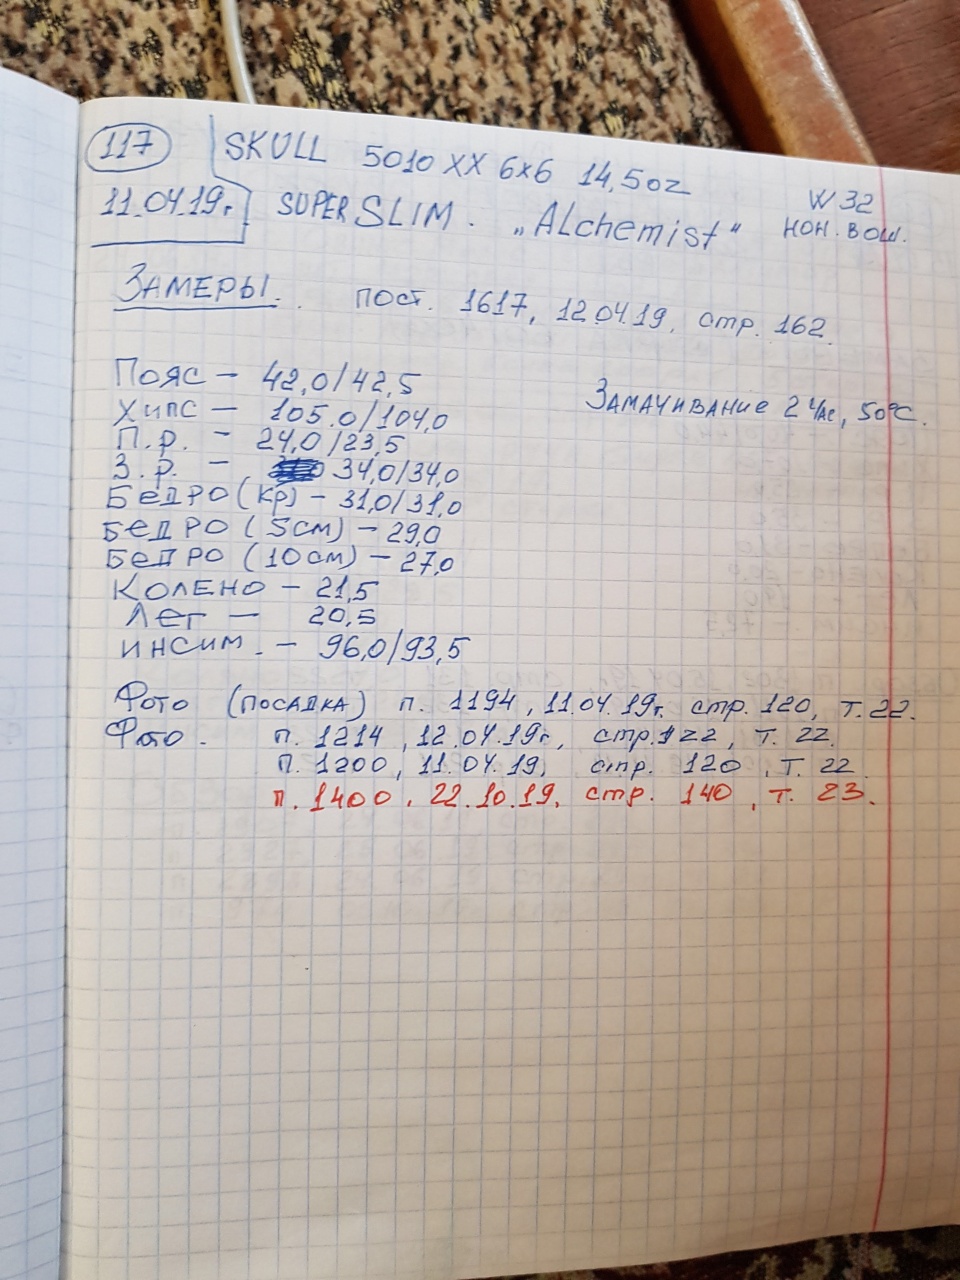 117 SKULL 5010 XX 6x6 14,5 oz W 32
11.04.19г SUPER SLIM. „ALchemist“ НОН. ВОШ.
ЗАМЕРЫ. пост. 1617, 12.04.19, стр. 162.
Пояс – 42,0/42,5
Замачивание 2 час, 50°С.
Хипс – 105.0/104,0
П.р. – 24,0/23,5
З.р. – 34,0/34,0
Бедро (кр) – 31,0/31,0
Бедро (5см) – 29,0
Бедро (10см) – 27,0
Колено – 21,5
Лег – 20,5
инсим. – 96,0/93,5
Фото (посадка) п. 1194, 11.04.19г. стр. 120, т. 22.
Фото. п. 1214, 12.04.19г, стр. 122, т. 22.
п. 1200, 11.04.19, стр. 120, т. 22
п. 1400, 22.10.19, стр. 140, т. 23.